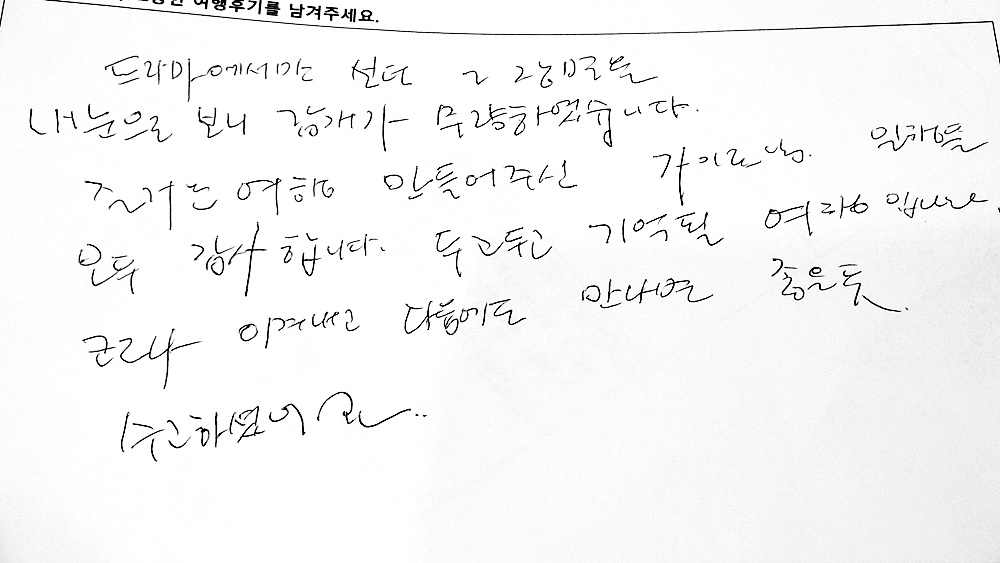 여행후기를 남겨주세요.
드라마에서만 보던 그 광경을
내눈으로 보니 감개가 무량하였습니다.
즐거운 여행 만들어주신 가이드님. 일행들
모두 감사합니다. 두고두고 기억될 여행입니다.
코로나 이겨내고 다음에도 만나면 좋을듯.
수고하셨어요..